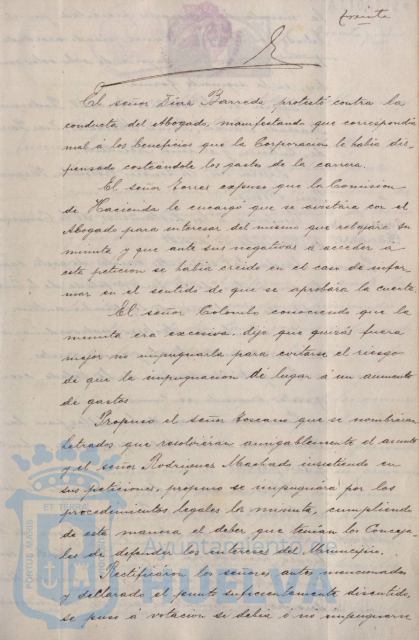 treinta
El señor Diaz Barreda, protestó contra la
conducta del Abogado, manifestando que correspondia
mal á los beneficios que la Corporacion le habia dis-
pensado costeándole los gastos de la carrera.
El señor Torres expuso que la Comision
de Hacienda le encargó que se avistára con el
Abogado para interesar del mismo que rebajára su
minuta y que ante sus negativas á acceder á
esta peticion se habia creido en el caso de infor-
mar en el sentido de que se aprobára la cuenta.
El señor Colombo conociendo que la
minuta era excesiva, dijo que quizás fuera
mejor no impugnarla para evitarse el riesgo
de que la impugnacion dé lugar á un aumento
de gastos.
Propuso el señor Toscano que se nombráran
letrados que resolviéran amigablemente el asunto
y el señor Rodriguez Machado insistiendo en
sus peticiones, propuso se impugnára por los
procedimientos legales la minuta, cumpliendo
de esta manera el deber que tenian los Conceja-
les de defender los intereses del Municipio.
Rectificáron los señores antes mencionados
y declarado el punto suficientemente discutido,
se puso á votacion si debia ó no impugnarse
Ayuntamiento de
HUELVA
PORTUS MARIS
ET TERRAE